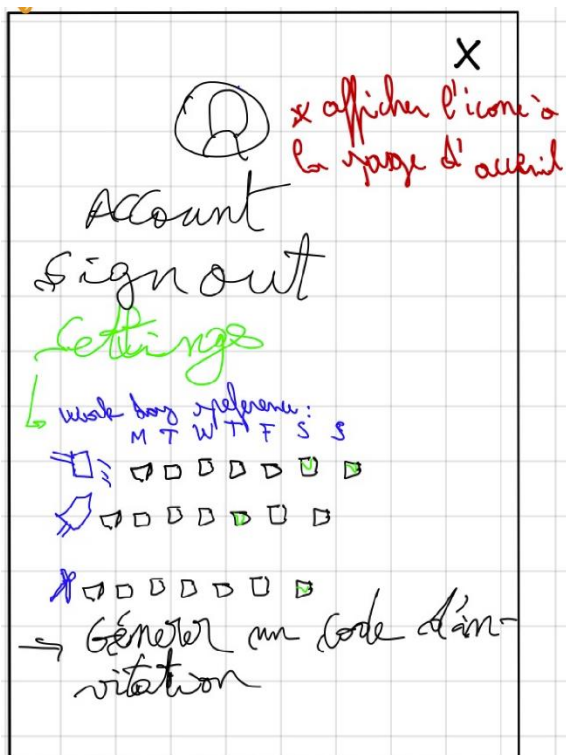 X
* afficher l'icone à
la page d'accueil
Account
Sign out
Settings
work day preference:
M T W T F S S
→ Générer un code d'in-
vitation